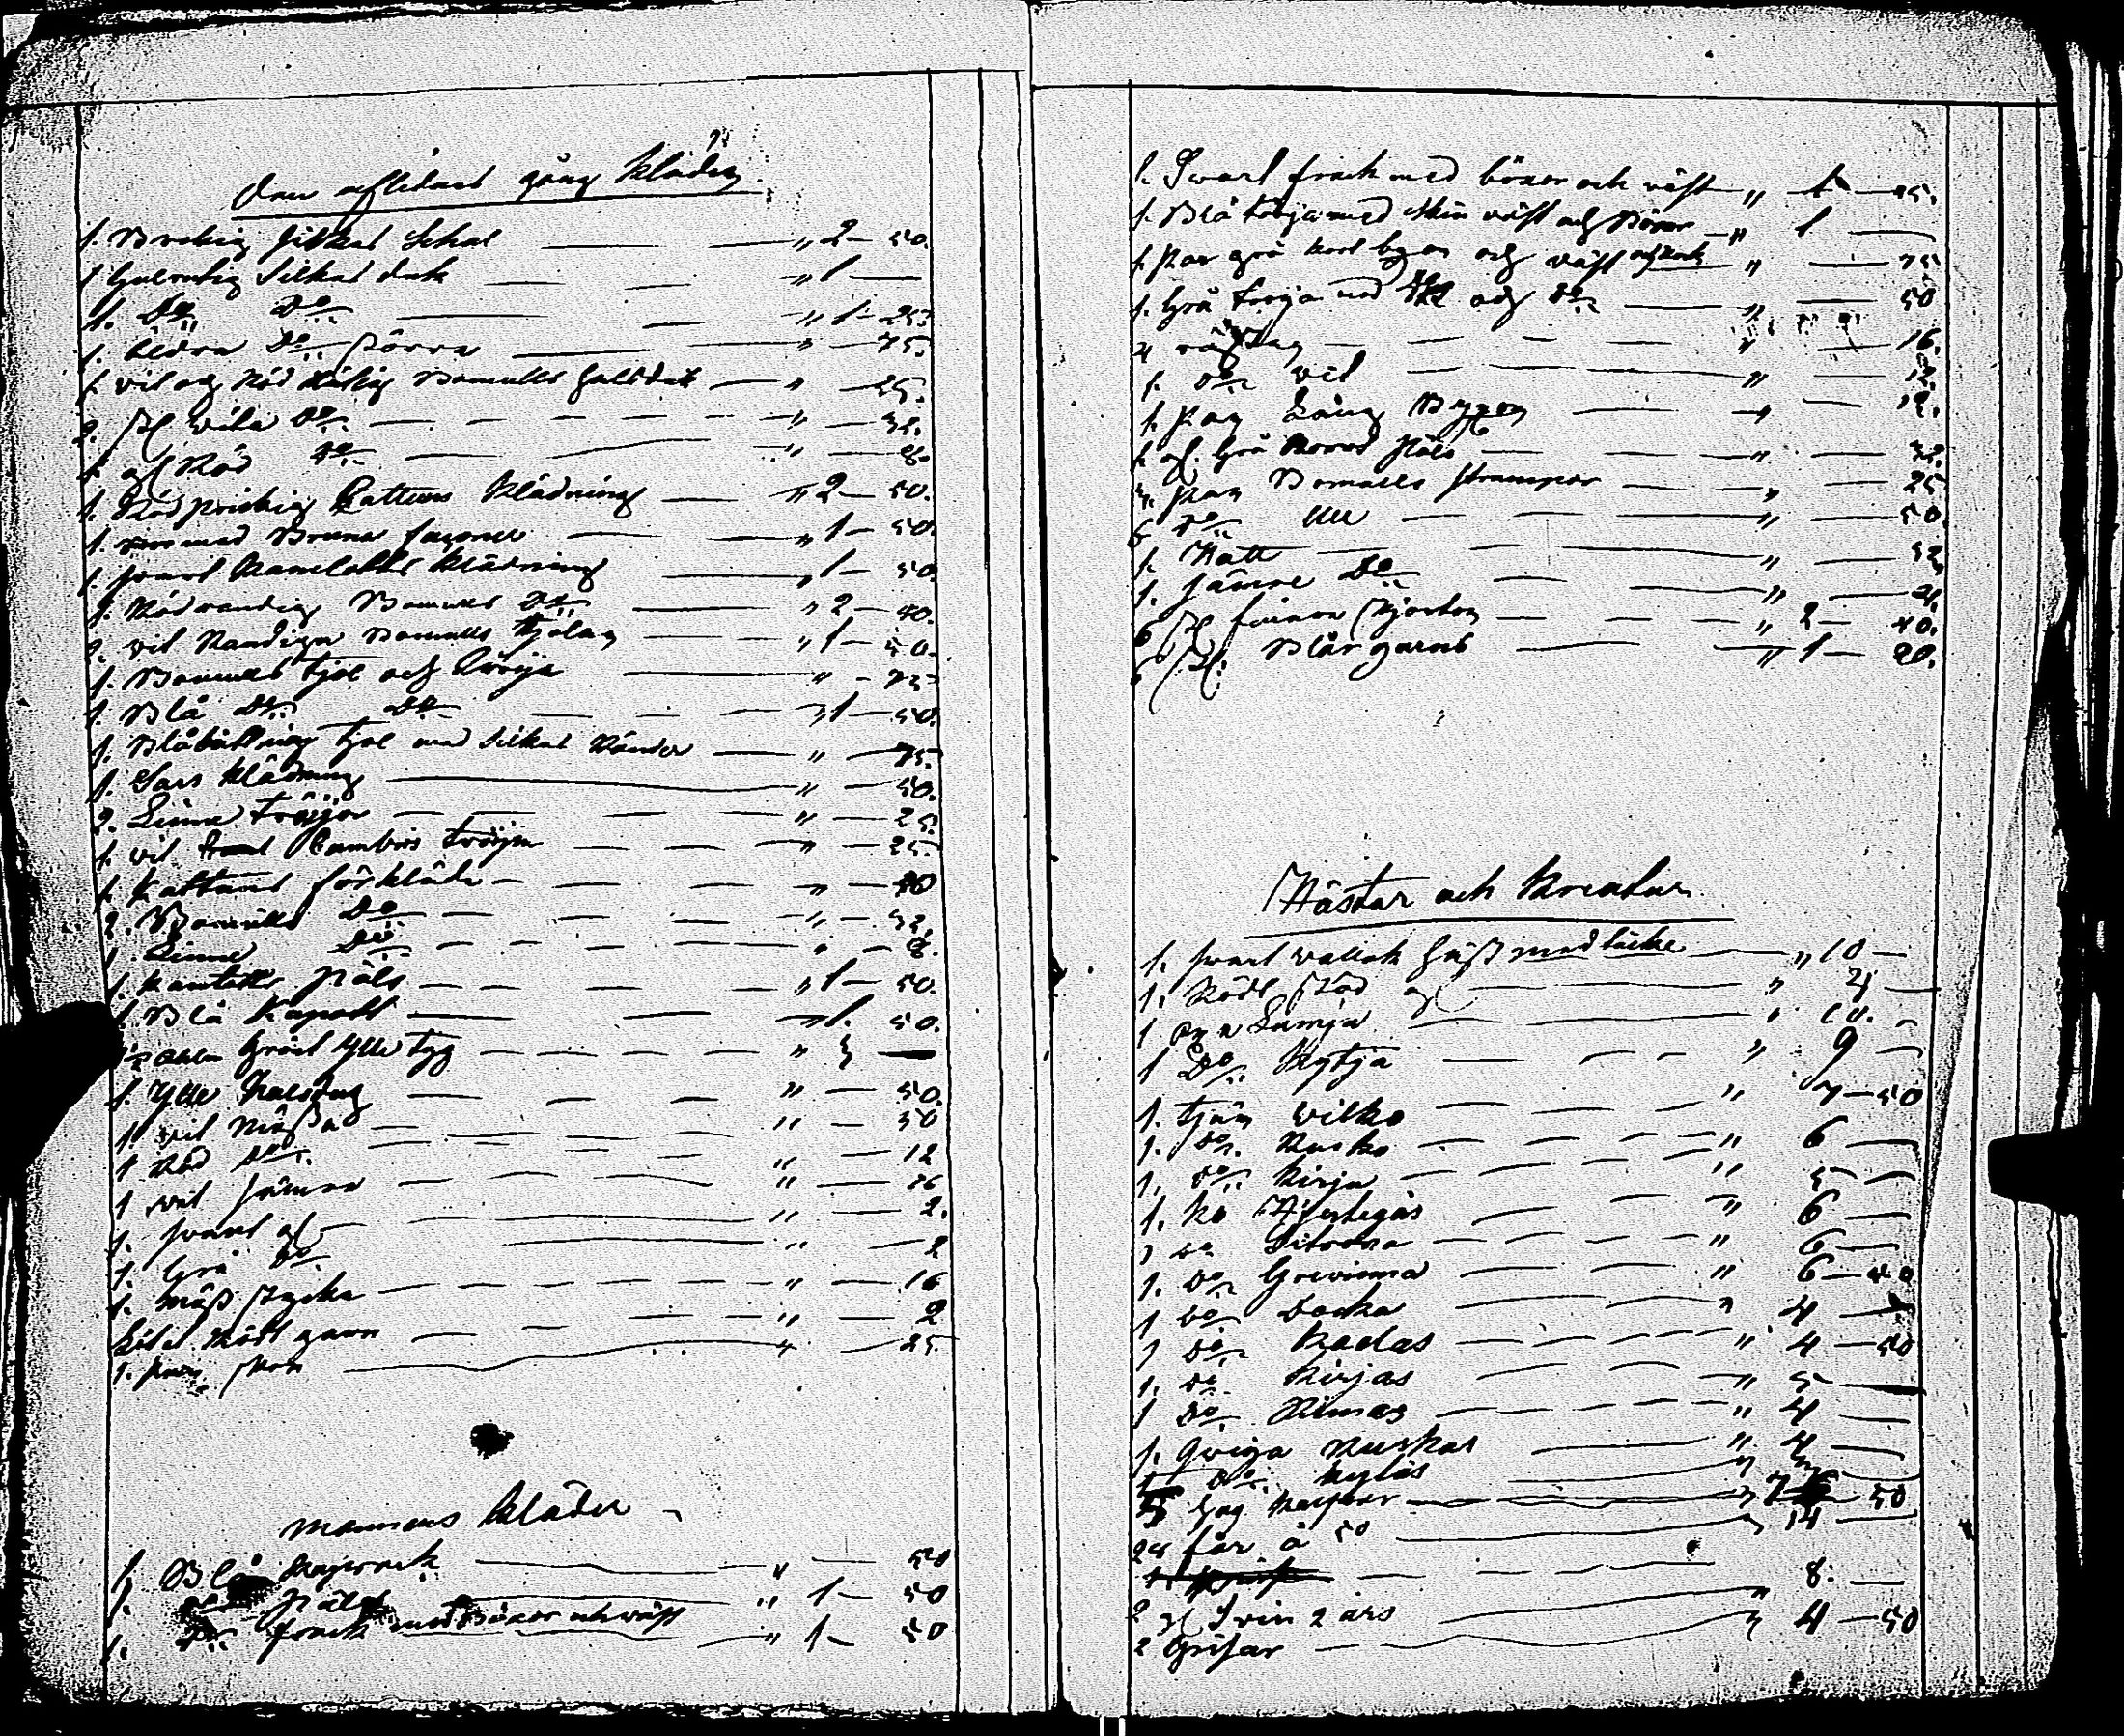 Den aflidnes gång kläder
1. Brokig Silkes Schal " 2 — 50.
1 Gulrutig Silkes duk " 1 —
1. Do Do " 1 — 25.
1. äldre Do större " — 75.
1. vit och Röd Rutig Bomulls halsduk " — 25.
2. st vita Do " — 32.
1. gl Röd Do " — 8.
1. Röd prickig Cattuns Klädning " 2 — 50.
1. med Bruna " 1 — 50.
1. svart Kamelotts Klädning " 1 — 50.
1. Rödrandig Bomulls Do " 2 — 40.
2. vit Randiga Bomulls Kjolar " 1 — 50.
1. Bomulls Kjol och tröija " — 75
1. Blå Do Do " 1 — 50.
1. Kjol med Silkes Ränder " — 75.
1. Sars klädning " — 50.
2. Linne tröjjor " — 25.
1. vit Cambric tröija " — 25.
1. Kattuns förkläde " — 40
2. Bomulls Do " — 32.
1. Linne Do " — 8.
1. päls " 1 — 50.
1. Blå Kapott " 1. 50.
alen Grönt Ylle tyg " 3 —
1. Ylle halsduk " — 50.
1. vit Mössa " — 50
1 Röd Do " — 12
1 vit sämre " — 16
1. svart gl " — 2.
1. Grå Do " — 2
1. mösstycke " — 16
Litet Rött garn " — 2
1. par skor " — 25
mannens kläder
1. Blå Kaprock " — 50
1. Do Päls " 1 — 50
1. Do frack med Böxor och väst " 1 — 50
1. Svart frack med böxor och väst " 1 — 25.
1. Blå tröja med Skin väst och Böxor " 1 —
1. par grå kort byxor och väst och rock " — 75
1. Grå tröja med och Do " — 50
4 västar " — 16.
1. Do vit " — 12.
1. par Lång Byxor " — 12.
1. gl. Grå Päls " — 32.
4. par Bomulls strumpor " — 25
6 Do Ull " — 50
1. Hatt " — 32
1. sämre Do " — 4.
6 st finare skjortor " 2 — 40.
6 st. Blårgarns " 1 — 20.
Hästar och Kreatur
1. svart vallak häst med täcke " 10 —
1. Rödt stod gl " 4 —
1 oxe Lamja " 10. —
1 Do Kytja " 9 —
1. tjur Vilko " 7 — 50
1. Do Rusko " 6 —
1. Do Kirja " 5 —
1. Ko Hertigas " 6 —
1 Do " 6 —
1. Do Grevinna " 6 — 40
1 Do Docka " 4 —
1 Do " 4 — 50
1. Do Kirjas " 5 —
1 Do " 4 —
1. Qviga Ruskas " 4 —
1 Do Kytas "
" 7 50
28 får à 50 " 14 —
8. —
2 st Svin 2 års " 4 — 50
2 Grisar